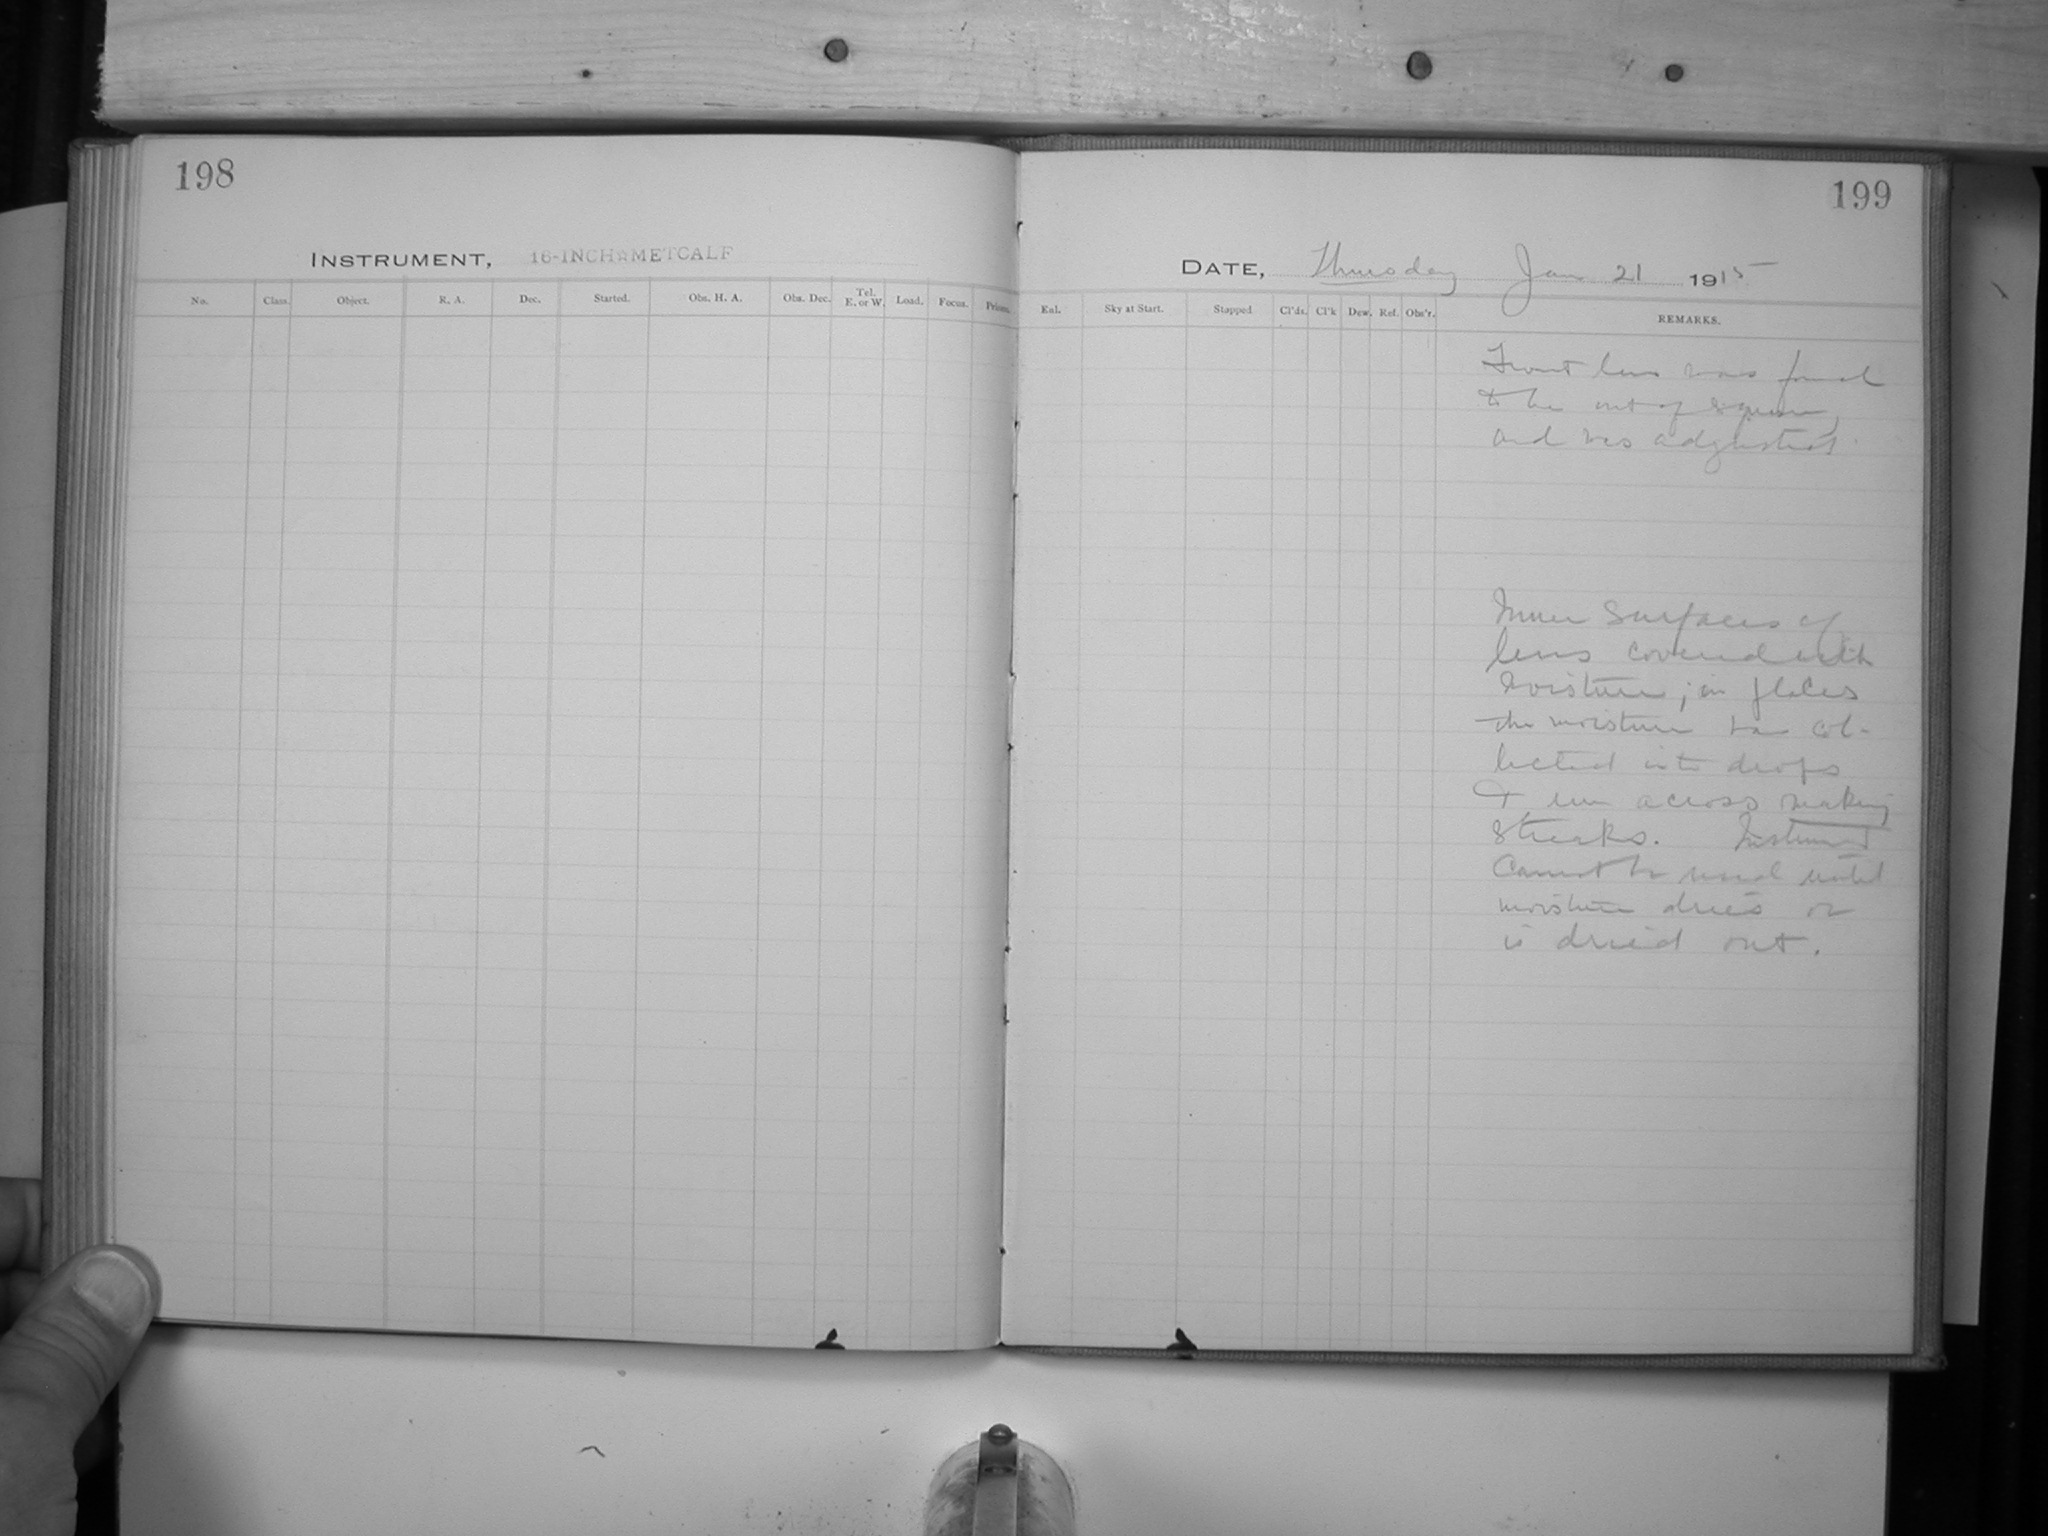 198
INSTRUMENT, 16-INCH☆METCALF
No. Class. Object. R. A. Dec. Started. Obs. H. A. Obs. Dec. Tel. E. or W. Load. Focus. Prisms.
199
DATE, Thursday Jan 21 1915
Exl. Sky at Start. Stopped Cl'ds. Cl'k Dew. Ref. Obs'r. REMARKS.
Front lens was found
to be out of square,
and was adjusted.
Inner surfaces of
lens covered with
moisture; in places
the moisture has col-
lected into drops
& run across making
streaks. Instrument
cannot be used until
moisture dries or
is dried out.